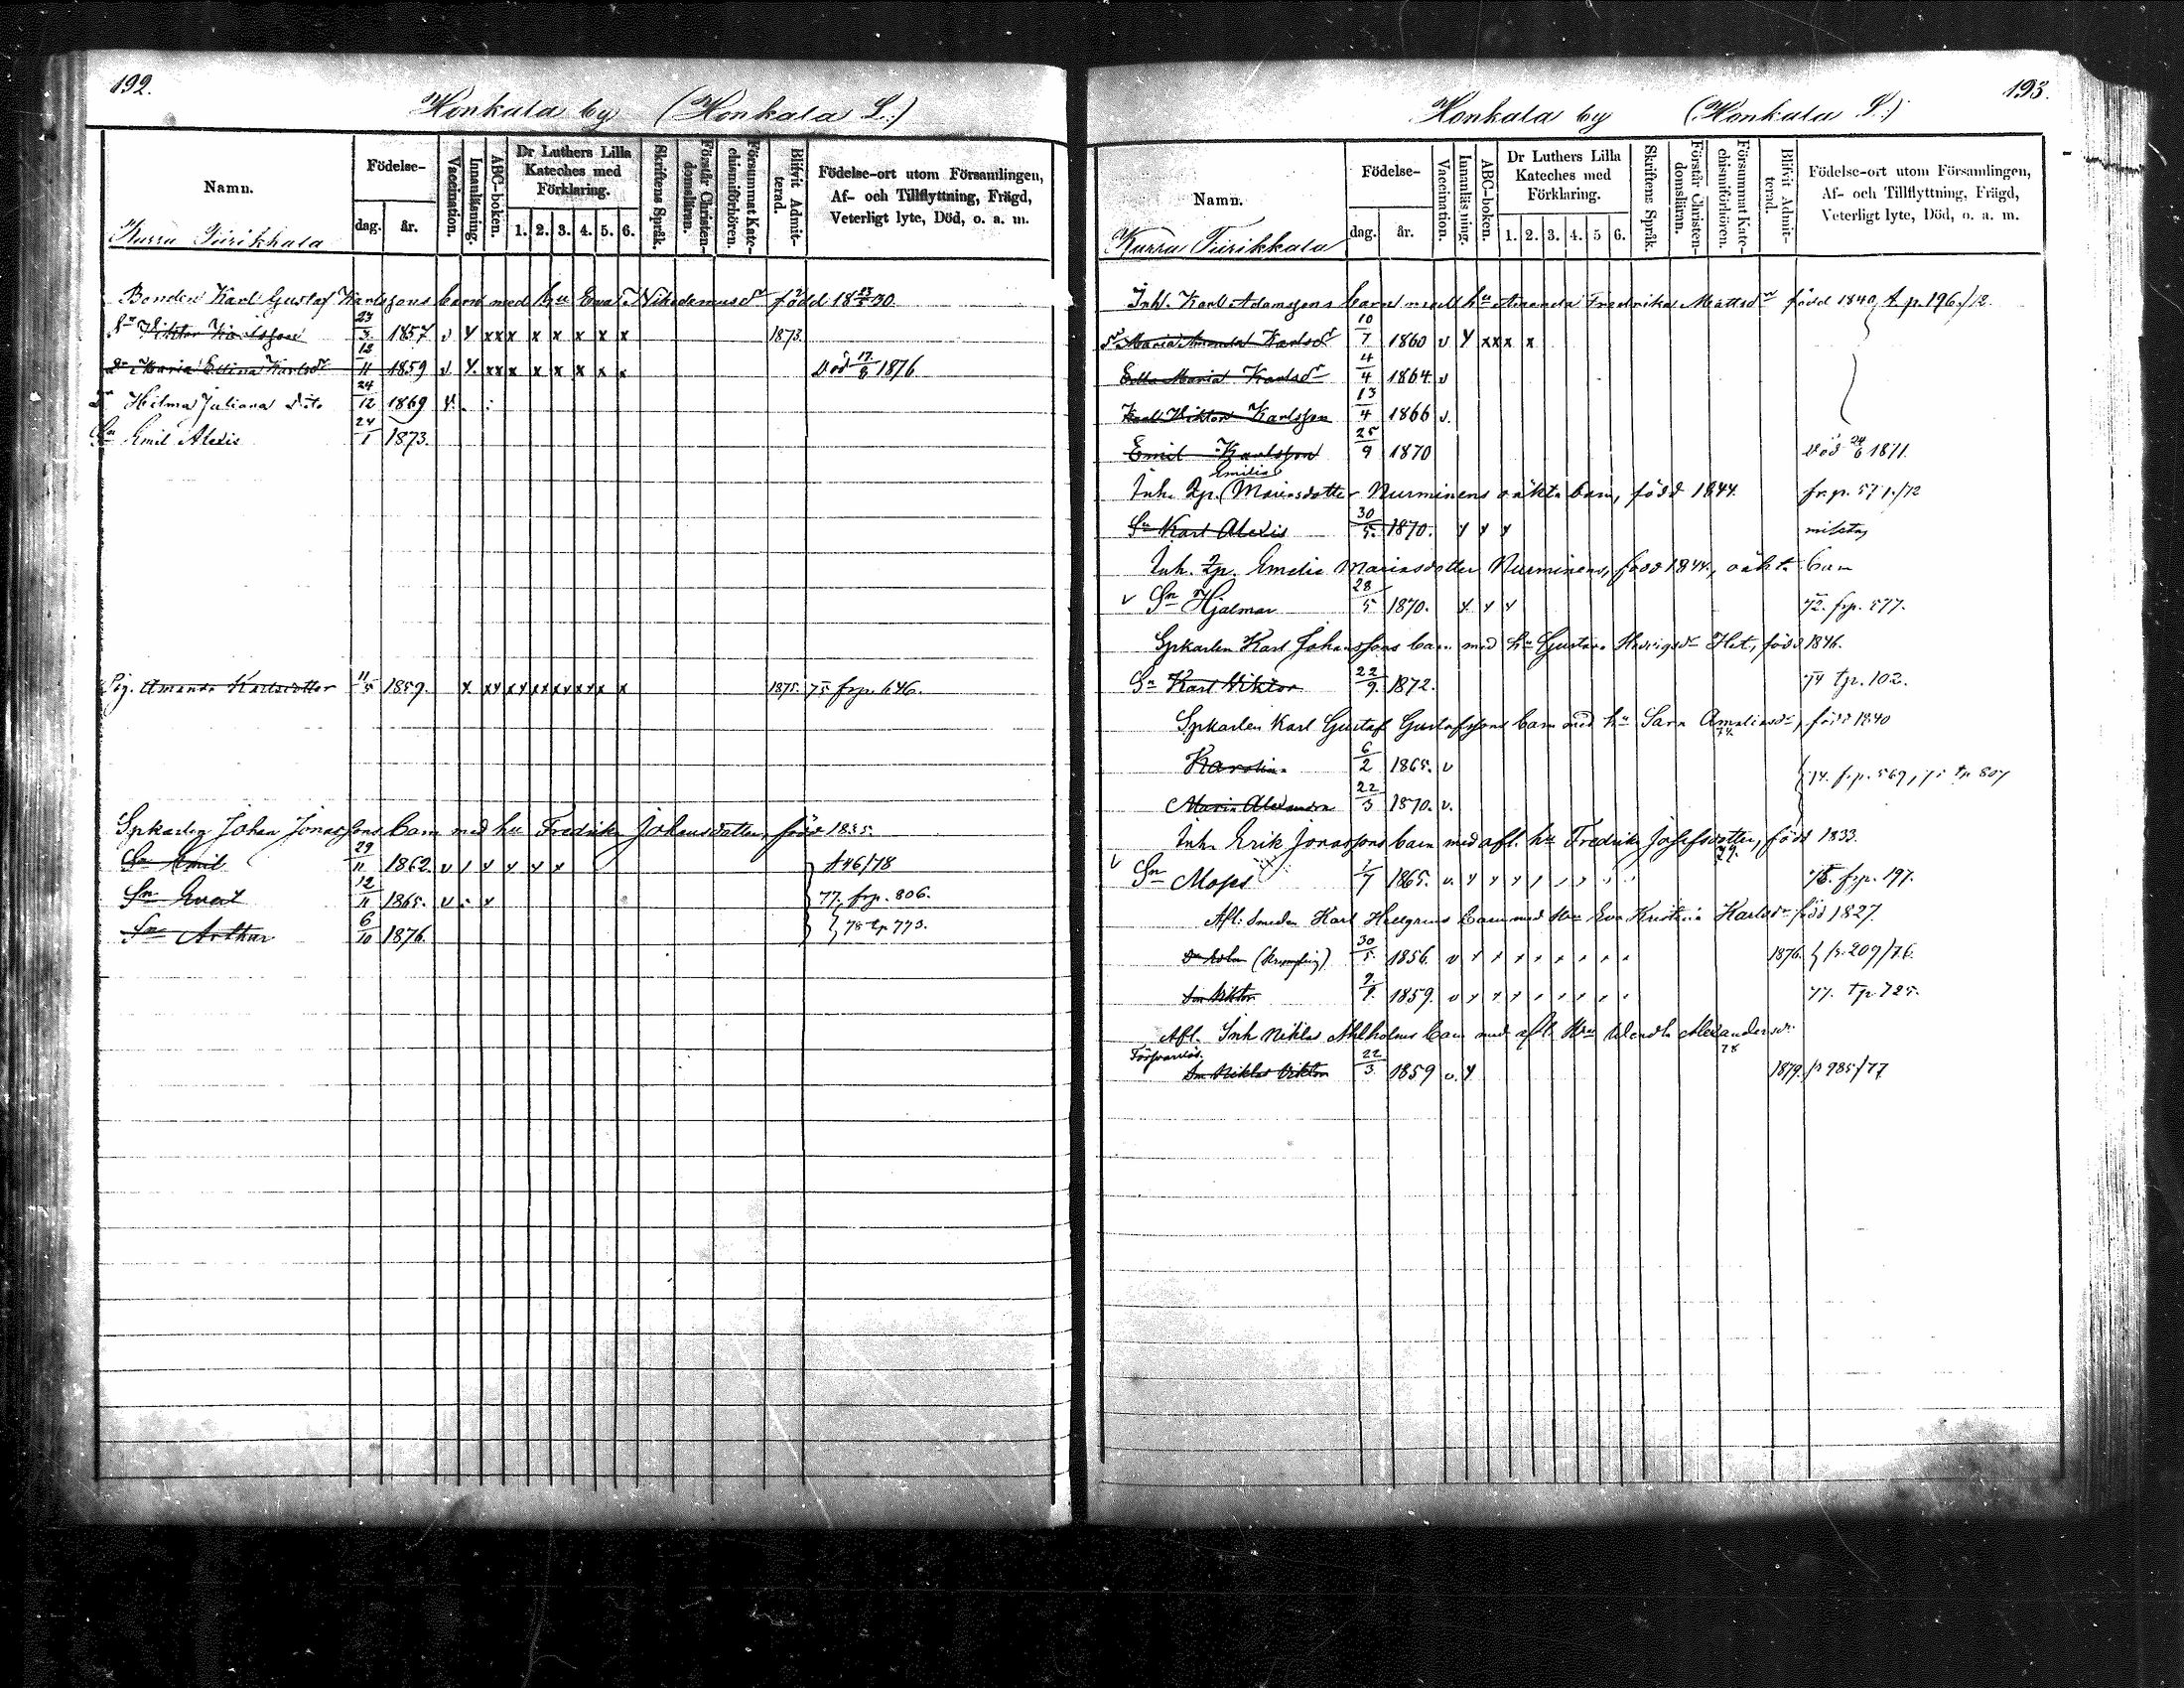 192.
Honkala by (Honkala S.)
Namn.
Kurra Tiirikkala
Födelse-
dag. år.
Vaccination.
Innanläsning.
ABC-boken.
Dr Luthers Lilla Kateches med Förklaring.
1. 2. 3. 4. 5. 6.
Skriftens Språk.
Förstår Christendomsläran.
Försummat Katechismiförhören.
Blifvit Admitterad.
Födelse-ort utom Församlingen,
Af- och Tillflyttning, Frägd,
Veterligt lyte, Död, o. a. m.
Bonden Karl Gustaf Karlssons barn med hu Eva Nikodemusdr född 1830.
Sn Viktor Karlsson 23/3 1857 v y xxx x x x x x 1873.
Dr Maria Elina Karlsdr 11 1859 v y. xxx x x x x x Död 17/8 1876
Dr Hilma Juliana Dito 24/12 1869 y.
Sn Emil Alexis 24/1 1873.
Pig. Amanda Karlsdotter 11/5 1859. 1875. 75 frp. 646.
Spkarlen Johan Jonassons barn med hu Fredrika Johansdotter, född 1835.
Sn Emil 29/11 1862. v / y y y y y A46/78
Sn Evert 12/11 1865. v 77. frp. 806.
Sn Arthur 6/10 1876. 78 tp 773.
193.
Honkala by (Honkala S.)
Namn.
Kurra Tiirikkala
Födelse-
dag. år.
Vaccination.
Innanläsning.
ABC-boken.
Dr Luthers Lilla Kateches med Förklaring.
1. 2. 3. 4. 5 6.
Skriftens Språk.
Förstår Christendomsläran.
Försummat Katechismiförhören.
Blifvit Admitterad.
Födelse-ort utom Församlingen,
Af- och Tillflyttning, Frägd,
Veterligt lyte, Död, o. a. m.
Inh. Karl Adamssons barn med hu Amanda Fredrika Mattsdr född 1840, t. p. 196./72.
Dr Maria Amanda Karlsdr 10/7 1860 v y xxx x
Edla Maria Karlsdr 4/4 1864. v
Karl Viktor Karlsson 13/4 1866 v.
Emil Karlsson 25/9 1870 Död 24/6 1871.
Emilia
Inh. Zp. Mariasdotter Nurminens oäkta barn, född 1844. fr. p. 571./72
Sn Karl Alexis 30/5. 1870. y y y
Inh. Zp. Emelie Mariasdotter Nurminens, född 1844., oäkta barn
v Sn Hjalmar 28/5 1870. y y y 72. frp. 577.
Spkarlen Karl Johanssons barn med hu Gustava Hedvigsdr Het, född 1846.
Sn Karl Viktor 22/9. 1872. 74 tp. 102.
Spkarlen Karl Gustaf Gustafssons barn med hu Sara Amaliasdr, född 1840
Karolina 6/2 1865. v 74. frp. 569, 75 tp 807
Maria Alexandra 22/3 1870. v.
Inh. Erik Jonassons barn med afl. hu Fredrika Josefsdotter, född 1833.
79.
v Sn Moses 1/7 1865. v. y 75. frp. 197.
Afl. Smeden Karl Hellgrens barn med hu Eva Kristina Karlsdr född 1827.
30/5. 1856. v 1876. fr. 209/76.
Sn Viktor 9/9. 1859. v 77. tp. 725.
Afl. Inh Niklas Ahlholms barn med afl. hu Wendla Alexandersdr.
78
Försvarslös.
Sn Niklas Viktor 22/3 1859 v. y 1879. p 985/77